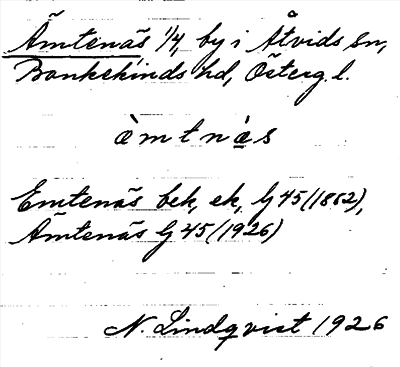 Ämtenäs 1/4, by i Åtvids sn,
Bankekinds hd, Österg. l.
ä̀mtnạ̀s
Emtenäs bek, ek, G 45 (1882),
Ämtenäs G 45 (1926)
N. Lindqvist 1926